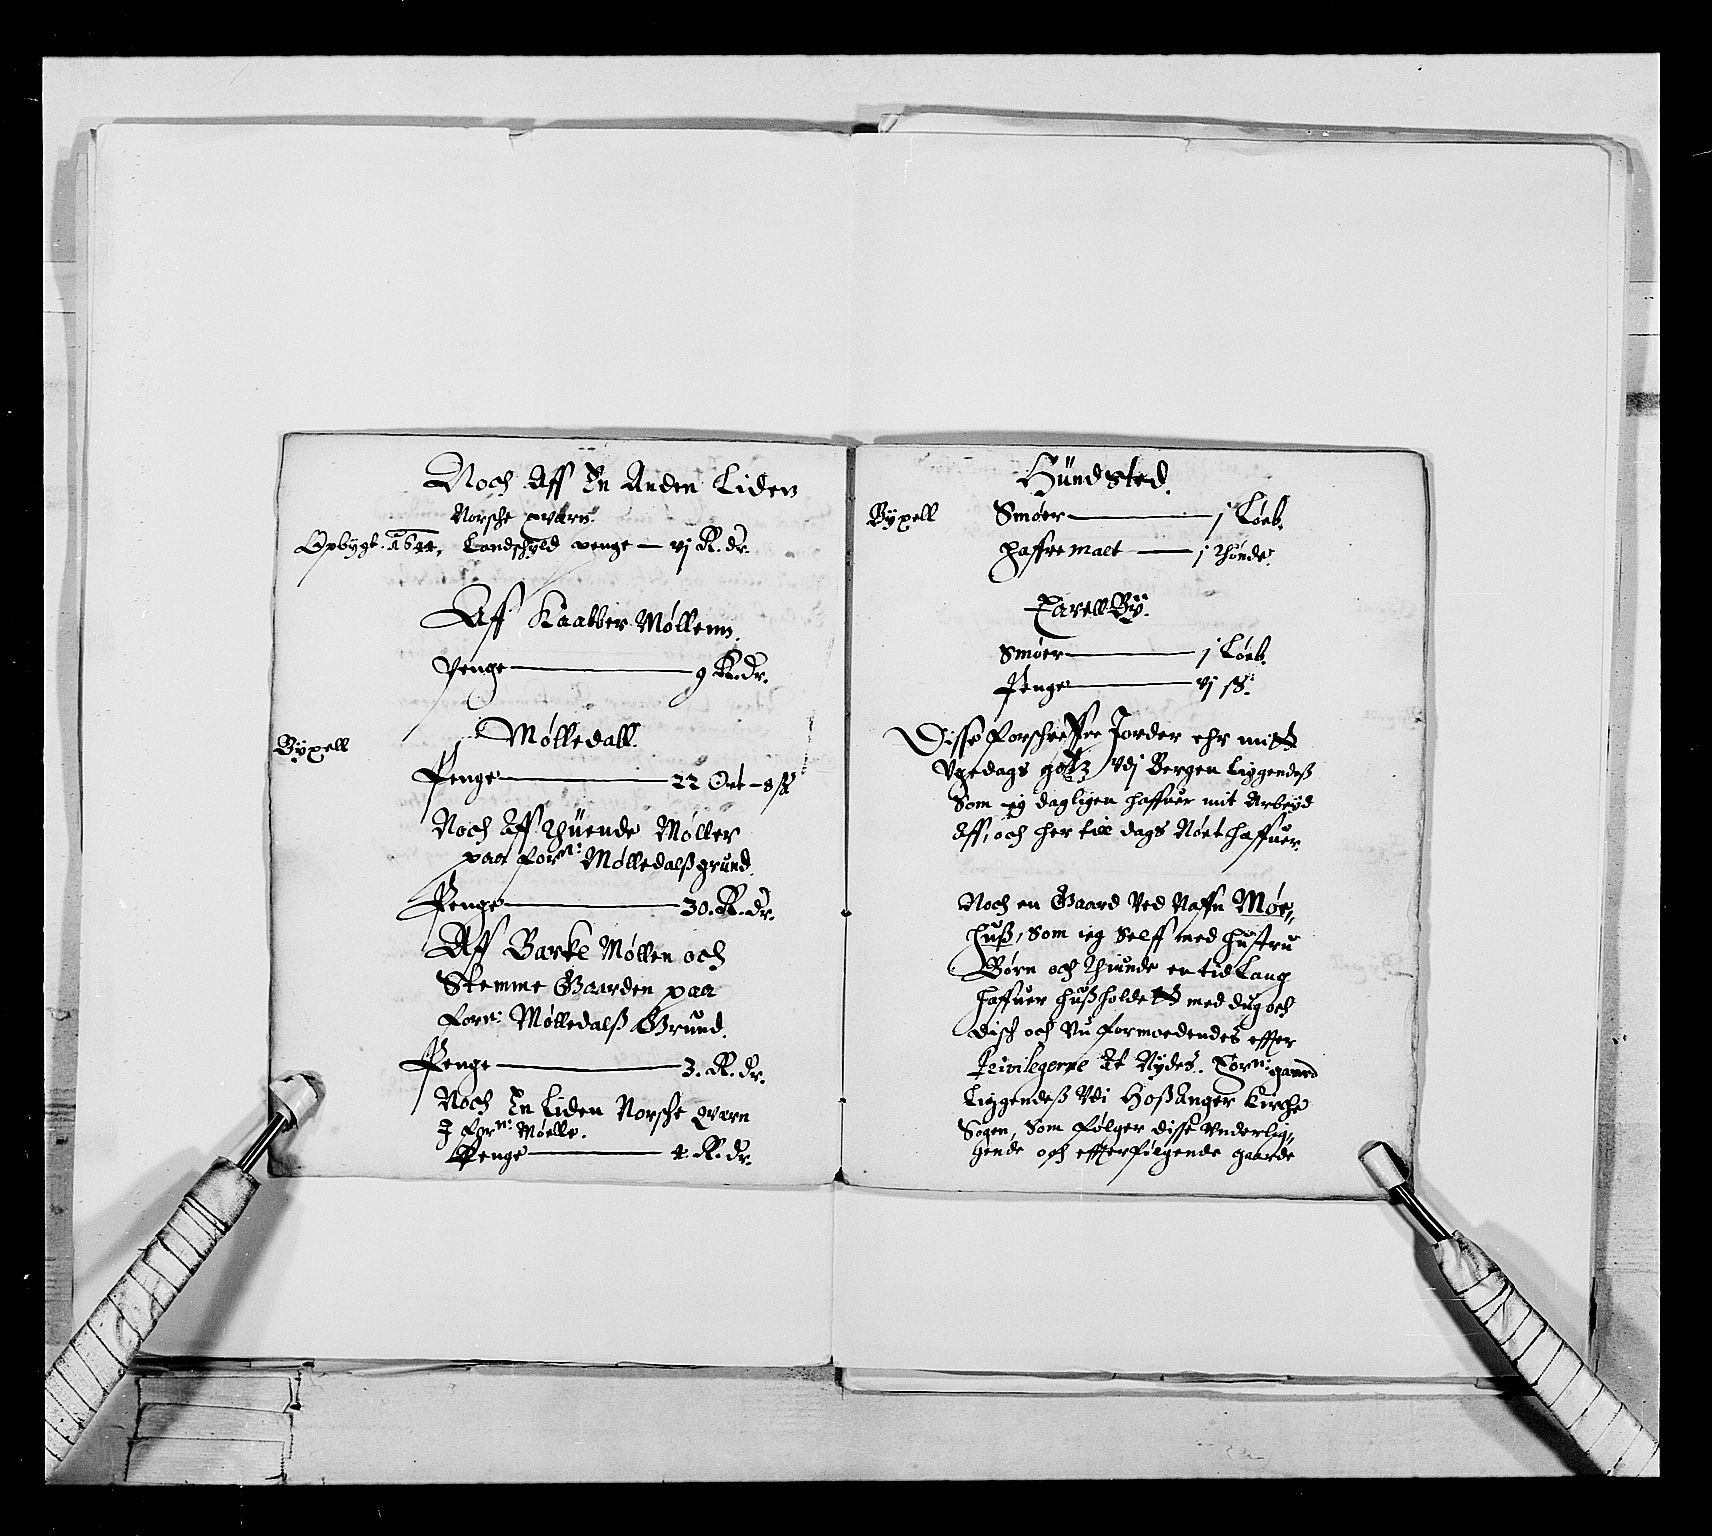 Noch Aff En Anden Liden
Norsche qvarn.
Opbygt. 1644. Landschyld penge — vj R. dr.
Aff Kaabber Møllenn.
Penge — 9 R. dr.
Bÿxell
Mølledall.
Penge — 22 Ort – 8 ß
Noch Aff Thüende Møller
paa forn: Mølledalß grund.
Penge — 30. R. dr.
Aff Barke Møllen och
Stemme Gaarden paa
forn: Mølledalß Grund.
Penge — 3. R. dr.
Noch En Liden Norsche qvarn
J forn: Mølle.
Penge — 4. R. dr.
Hündsted.
Bÿxell Smøer — j Løeb.
Haffremalt — j Thønde.
Smøer — j Løeb.
Penge — vj ß.
Disse forschreffne Jorder ehr mitt
Vgedags gotz Vdj Bergen Liggendeß
Som ieg dagligen haffuer mit Arbeyd
Aff, och her till dags Nøet haffuer.
Noch en Gaard Ved Naffn Møe,,
huß, som ieg Selff med hustru
Børn och Thiunde en tid Lang
haffuer hußholdett med dug och
Disch och Nu formoedendes effter
Privilegerne At Nydes. Forn: gaard
Liggendeß Vdi Hoßanger Kirche
Sogen, Som følger disse Vnderlig,,
gende och effterfølgende gaarde